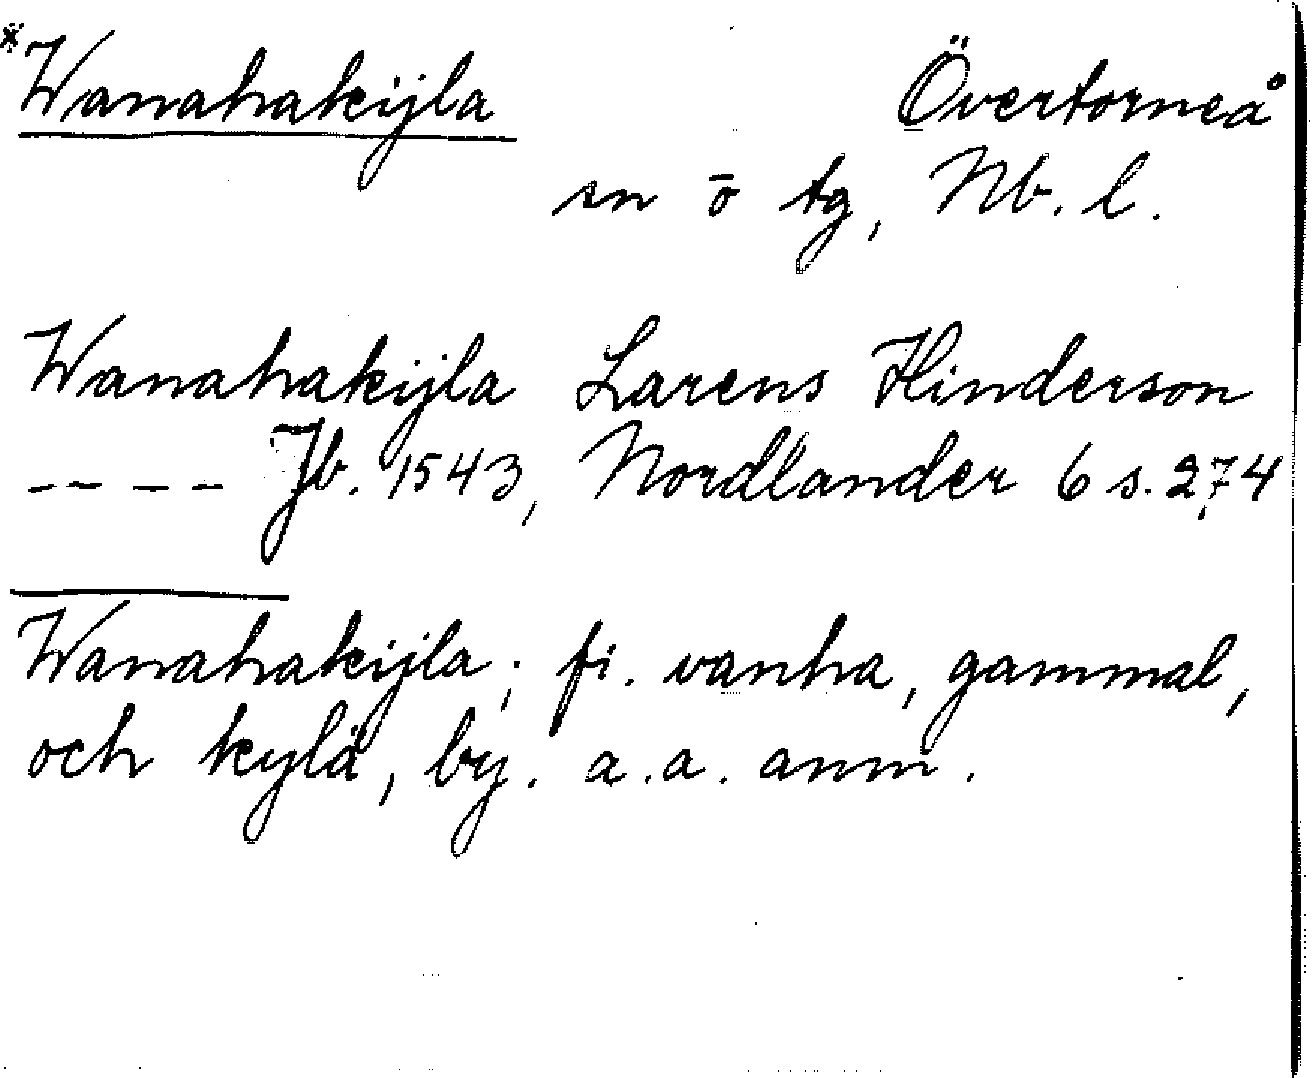 *Wanahakijla Övertorneå
sn ō tg, Nb. l.
Wanahakijla Larens Hinderson
---- Jb. 1543, Nordlander 6 s. 274
Wanahakijla; fi. vanha, gammal,
och kylä, by. a.a. anm.